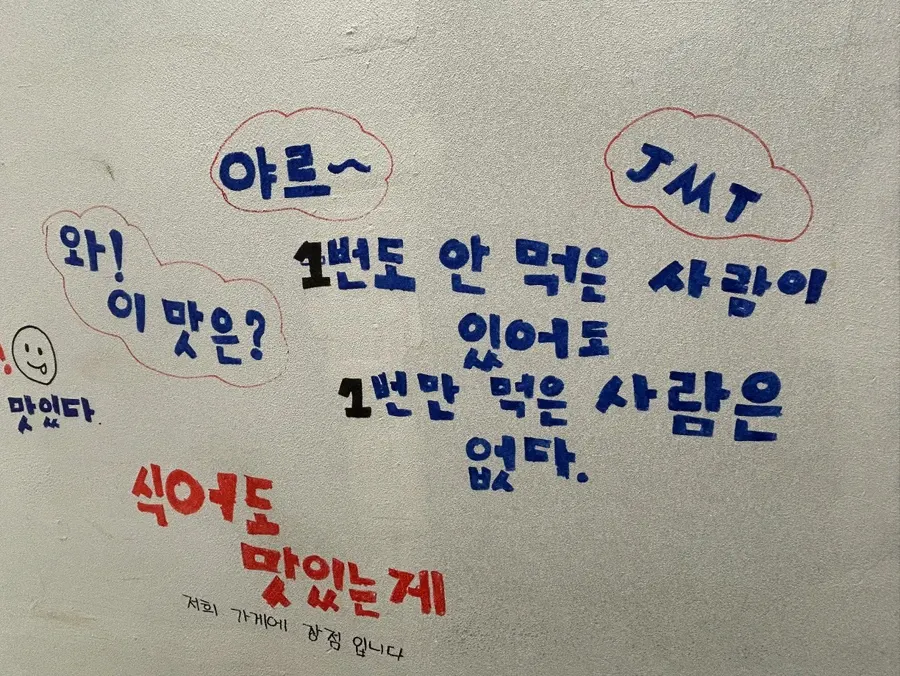 야르~
JMT
와!
이 맛은?
1번도 안 먹은 사람이
있어도
1번만 먹은 사람은
없다.
!
맛있다.
식어도
맛있는게
저희 가게에 장점 입니다